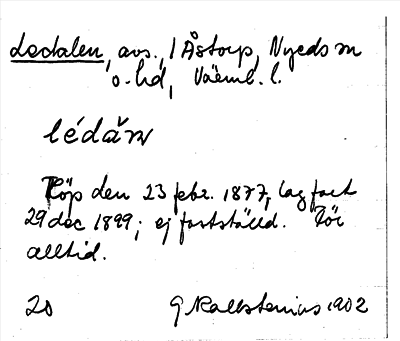 Ledalen, avs., i Åstorp, Nyeds sn
o. hd, Värml. l.
lédăɳ
Köp den 23 febr. 1877, lagfart
29 dec 1899; ej fastställd. För
alltid.
20 G Kallstenius 1902